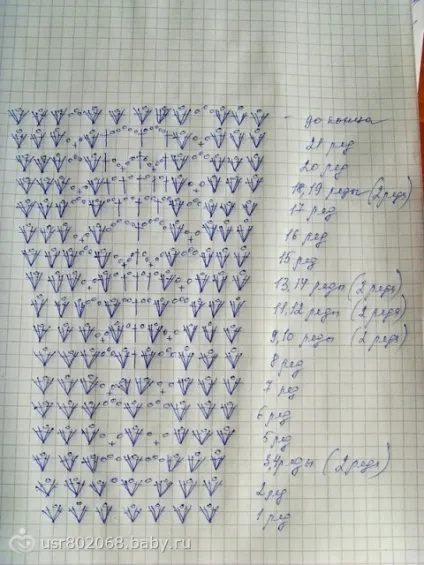 до конца
21 ряд
20 ряд
18,19 ряды (2 ряда)
17 ряд
16 ряд
15 ряд
13,14 ряды (2 ряда)
11,12 ряды (2 ряда)
9,10 ряды (2 ряда)
8 ряд
7 ряд
6 ряд
5 ряд
3,4 ряды (2 ряда)
2 ряд
1 ряд
usr802068.baby.ru